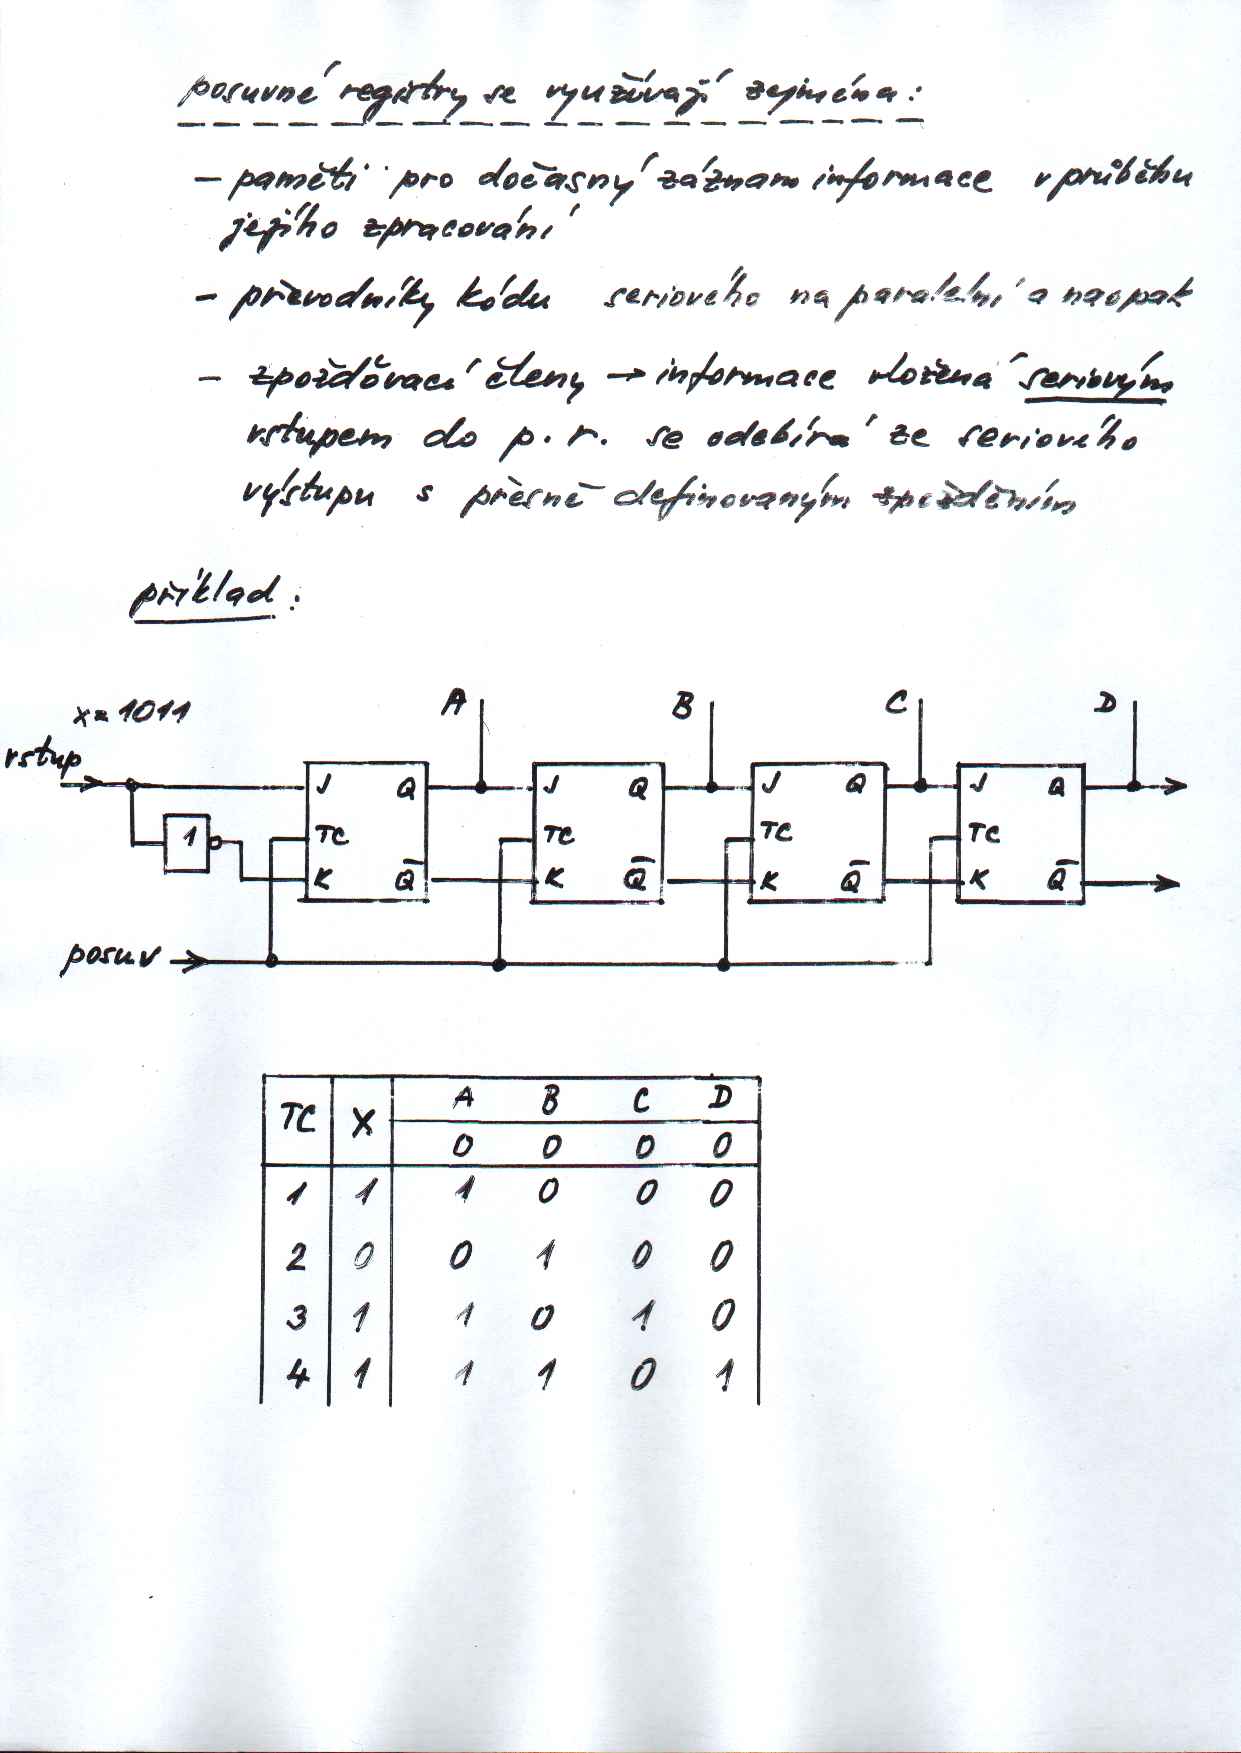 posuvné registry se využívají zejména:
- paměti pro dočasný záznam informace v průběhu
jejího zpracování
- převodníky kódu seriového na paralelní a naopak
- zpožďovací členy → informace vložená seriovým
vstupem do p. r. se odebírá ze seriového
výstupu s přesně definovaným zpožděním
příklad:
x = 1011
vstup
A B C D
J Q J Q J Q J Q
1 TC TC TC TC
K Q̅ K Q̅ K Q̅ K Q̅
posuv
TC X A B C D
0 0 0 0
1 1 1 0 0 0
2 0 0 1 0 0
3 1 1 0 1 0
4 1 1 1 0 1